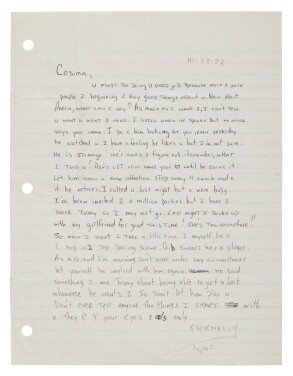 10-22-82
Cosima,
U must be doing a good job because more & more
people R beginning 2 say good things about U. Now about
Aaron, what can I say? As much as I want 2, I can't tell
U what U want 2 hear. I listen when he speaks but he never
says your name. I do c him looking at you, even yesterday
he watched U. I have a feeling he likes U but I'm not sure.
He is strange. He's hard 2 figure out. Remember what
I told U! Don't let him have U until he earns it.
Let him show U some affection. Stay away 4 awhile and c
if he notices. I called U last night but U were busy.
I've been invited 2 a million parties but I have 2
work today so I may not go. Last night I broke up
with my girlfriend for good this time! (Does U)
So now I want 2 take a little time 2 myself.
I was in the Dancing scene
As nice and I'm warning don't ever under any circumstances
let yourself be worked with him again. He said
something 2 me today about being able to get U back
whenever he wants 2. So don't let him play U.
Don't ever tell anyone the things I share with
U. They R 4 your eyes only.
Eternally